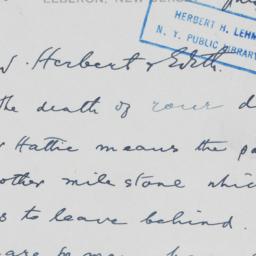 LEBERON, NEW JERSEY
HERBERT H. LEHM
N. Y. PUBLIC LIBRARY
Herbert & Edith.
The death of your d
Hattie means the pa
other mile stone whic
s to leave behind.